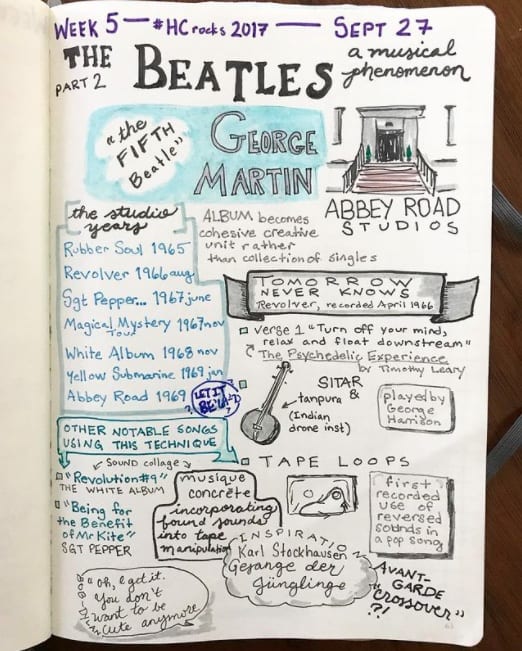 WEEK 5 — #HCrocks 2017 — SEPT 27
THE BEATLES
PART 2
a musical
phenomenon
"the
FIFTH
Beatle"
GEORGE
MARTIN
ABBEY ROAD
STUDIOS
the studio
years
Rubber Soul 1965
Revolver 1966 aug
Sgt Pepper... 1967 june
Magical Mystery 1967 nov
Tour
White Album 1968 nov
Yellow Submarine 1969 jan
Abbey Road 1969
LET IT
BE
ALBUM becomes
cohesive creative
unit rather
than collection of singles
TOMORROW
NEVER KNOWS
Revolver, recorded April 1966
verse 1 "Turn off your mind,
relax and float downstream"
The Psychedelic Experience
by Timothy Leary
SITAR
&
tanpura
(Indian
drone inst)
played by
George
Harrison
OTHER NOTABLE SONGS
USING THIS TECHNIQUE
SOUND collage
"Revolution #9"
THE WHITE ALBUM
"Being for
the Benefit
of Mr Kite"
SGT PEPPER
TAPE LOOPS
musique
concrète
incorporating
found sounds
into tape
manipulation
first
recorded
use of
reversed
sounds in
a pop song
INSPIRATION
Karl Stockhausen
Gesange der
Jünglinge
AVANT-
GARDE
"Crossover"
?!
"Oh, I get it.
You don't
want to be
cute anymore."